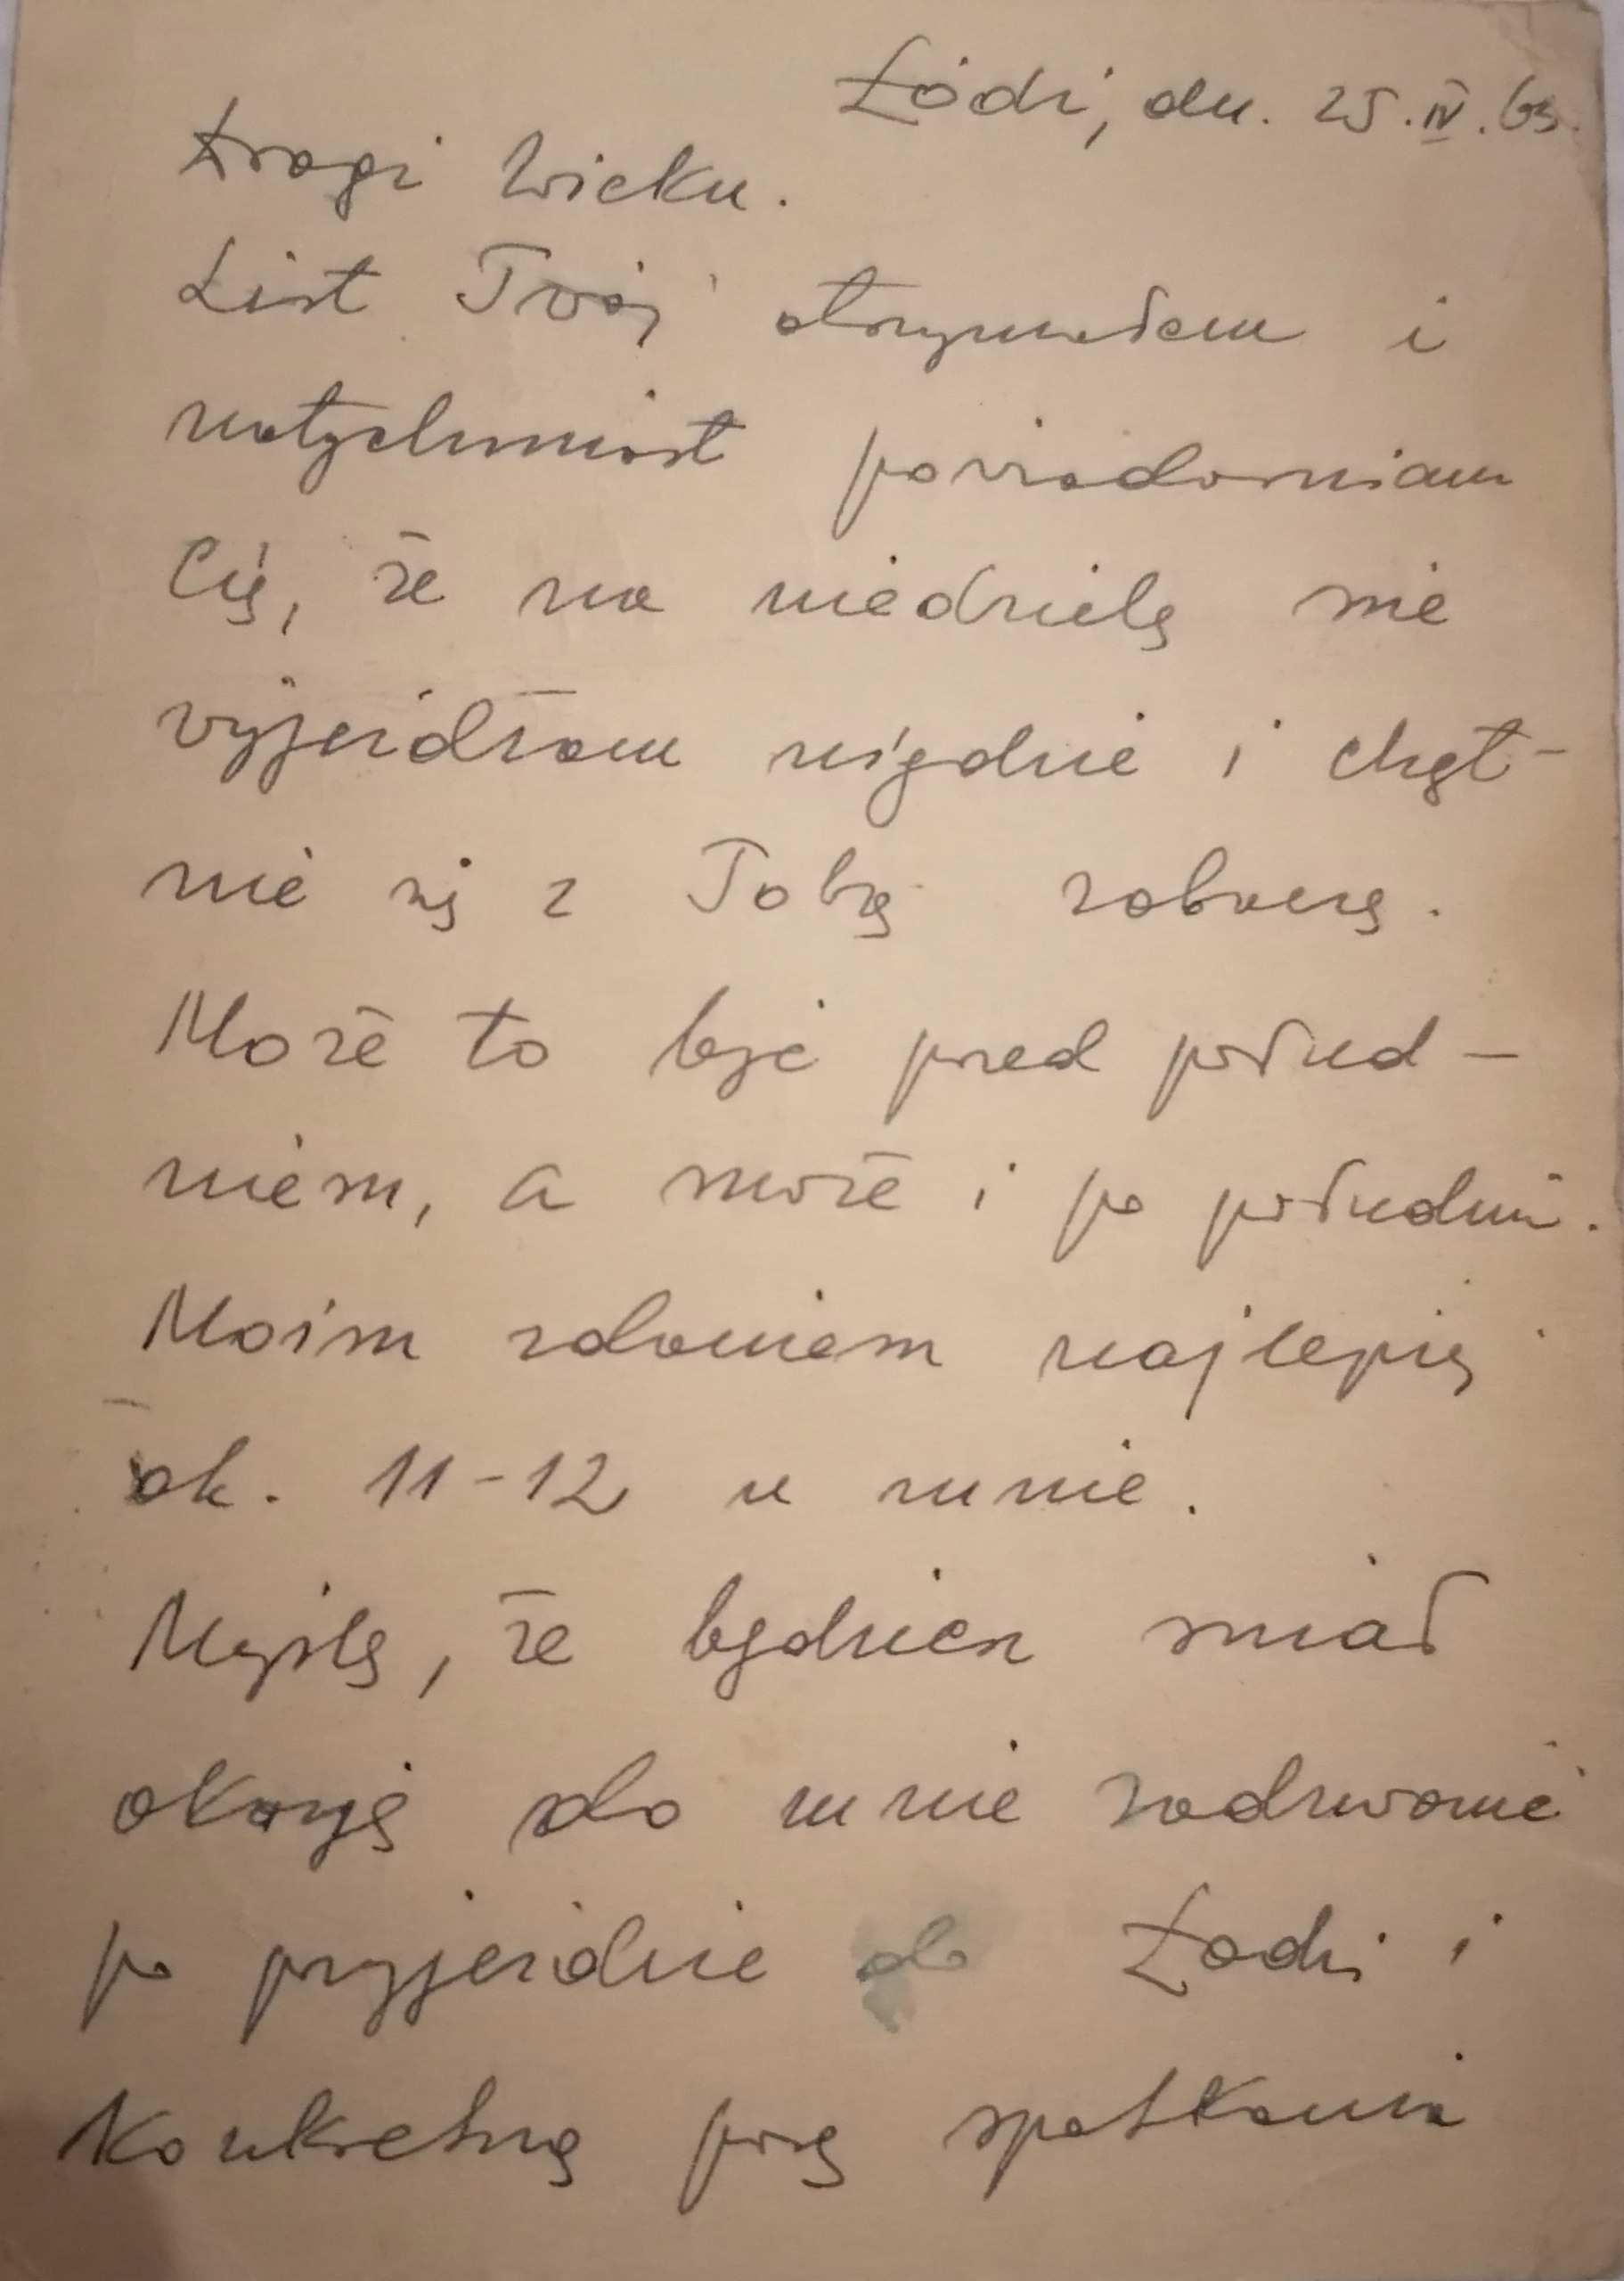 Łódź, dn. 25.IV.63.
Drogi Wicku.
List Twój otrzymałem i
natychmiast powiadomiam
Cię, że na niedzielę nie
wyjeżdżam nigdzie i chęt-
nie się z Tobą zobaczę.
Może to być przed połud-
niem, a może i po południu.
Moim zdaniem najlepiej
ok. 11-12 u mnie.
Myślę, że będziesz miał
okazję do mnie zadzwonić
po przyjeździe do Łodzi i
konkretną porę spotkania